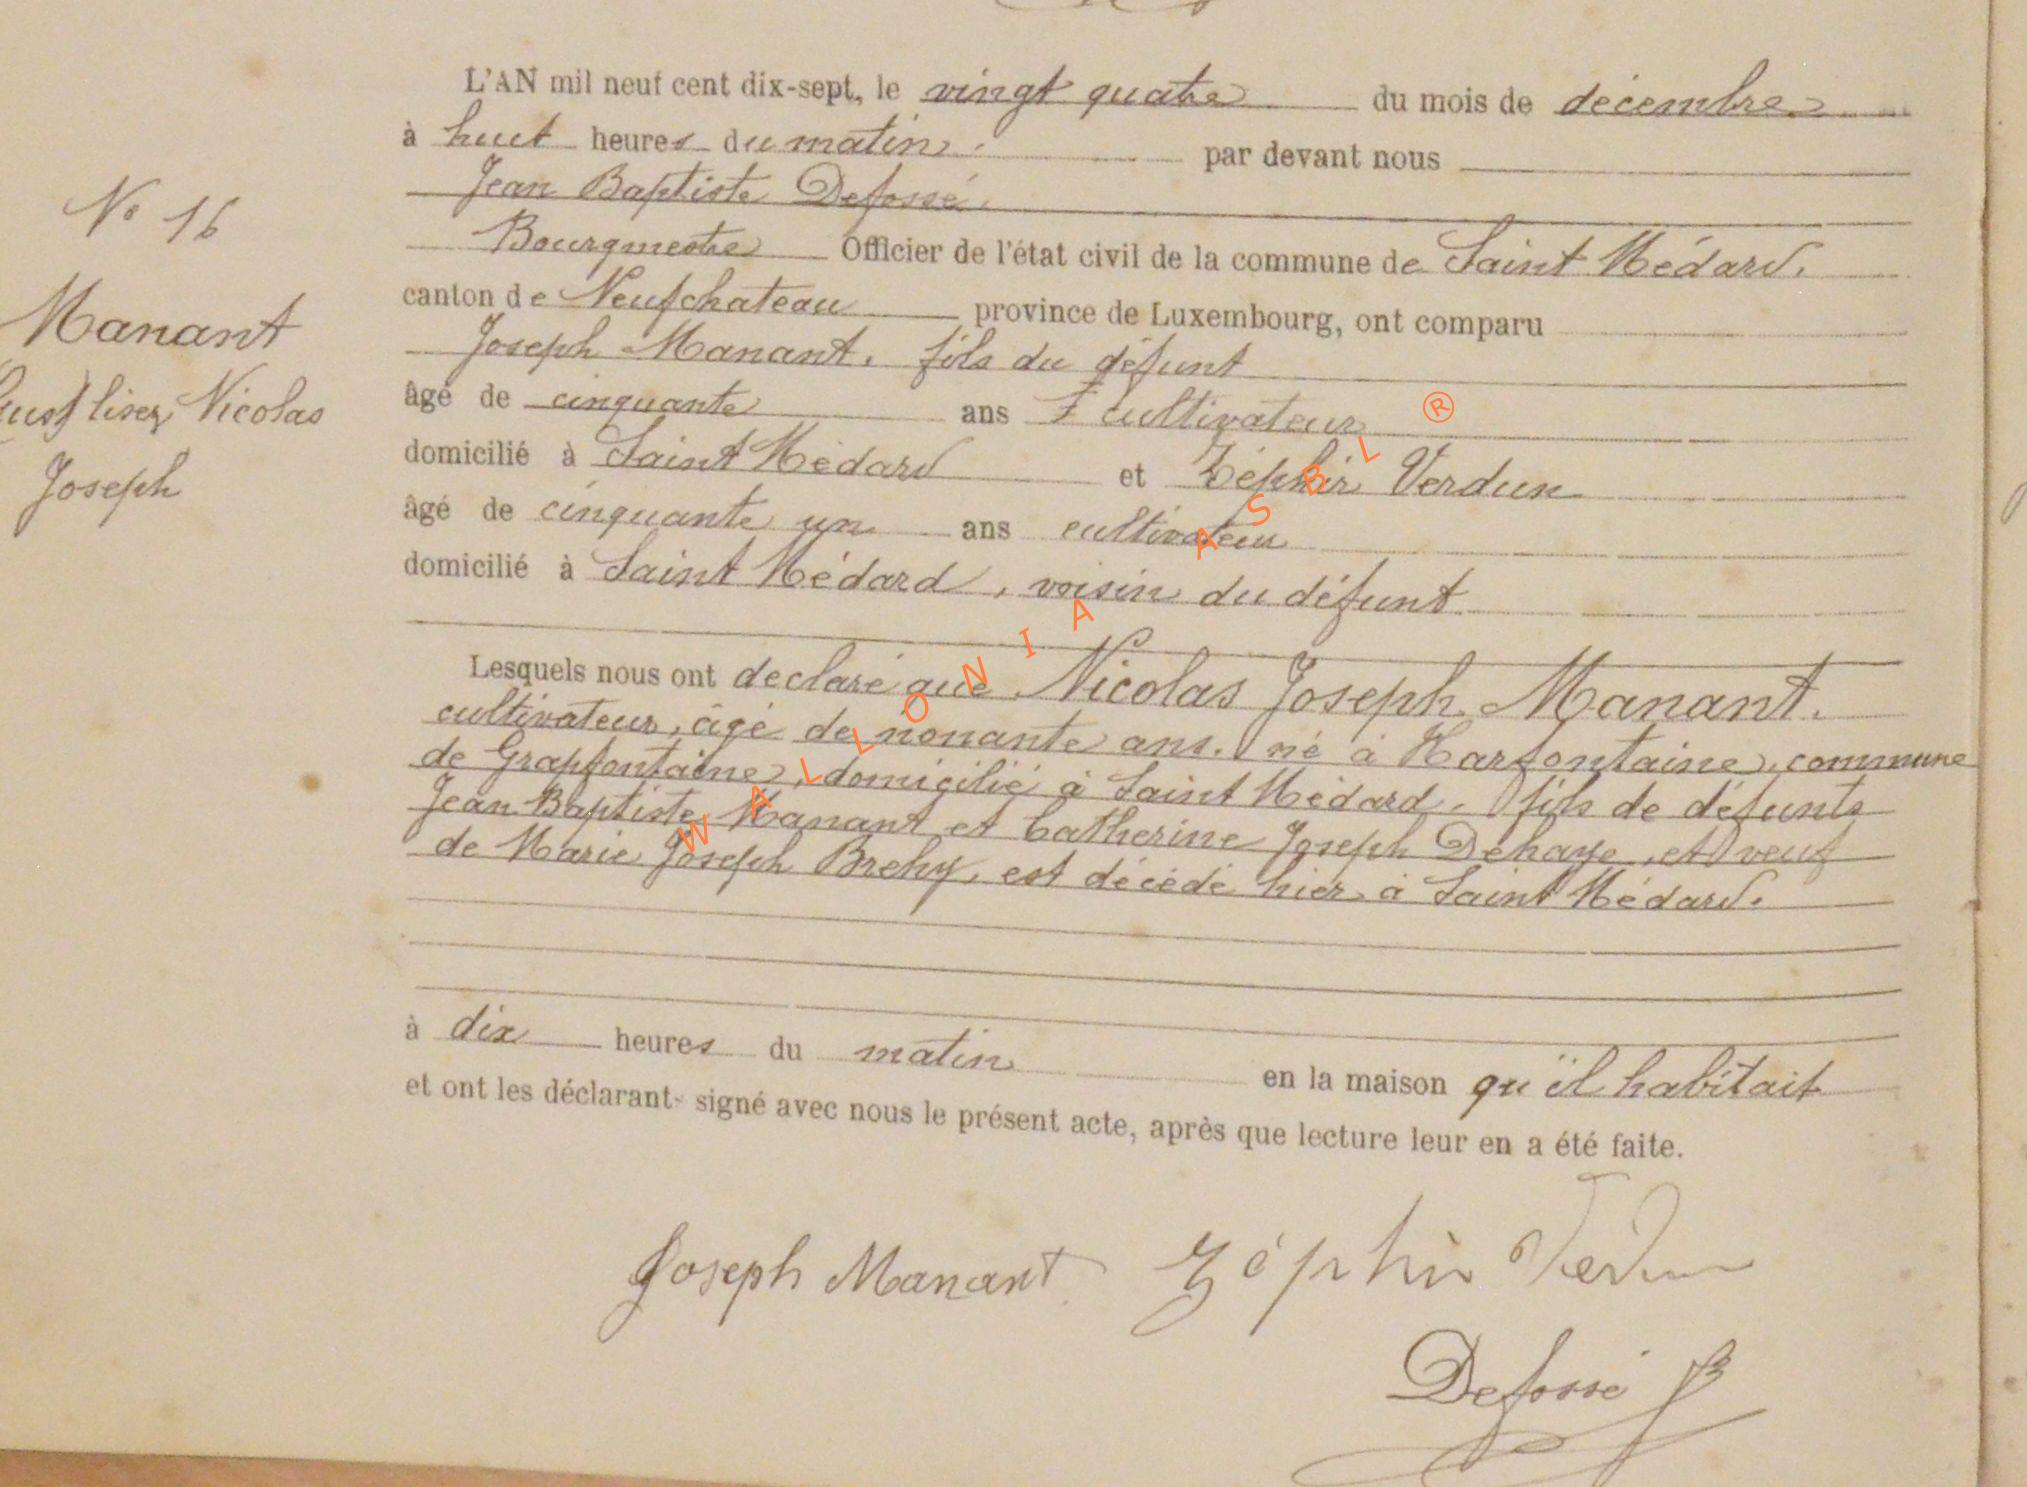 L'AN mil neuf cent dix-sept, le vingt quatre du mois de décembre
à huit heures du matin. par devant nous
Jean Baptiste Defossé.
Bourgmestre Officier de l'état civil de la commune de Saint Médard.
canton de Neufchateau province de Luxembourg, ont comparu
Joseph Manant. fils du défunt
âgé de cinquante ans cultivateur
domicilié à Saint Médard et Zéphir Verdun
âgé de cinquante un ans cultivateur
domicilié à Saint Médard, voisin du défunt
Lesquels nous ont declaré que Nicolas Joseph Manant.
cultivateur, âgé de nonante ans. né à Harfontaine, commune
de Grapfontaine, domicilié à Saint Médard. fils de défunts
Jean Baptiste Manant et Catherine Joseph Dehaye, et veuf
de Marie Joseph Brehy, est décédé hier à Saint Médard.
à dix heures du matin en la maison qu'il habitait
et ont les déclarant signé avec nous le présent acte, après que lecture leur en a été faite.
Joseph Manant Zéphir Verdun
Defossé JB
N° 16
Manant
lisez Nicolas
Joseph
WALLONIA ASBL ®